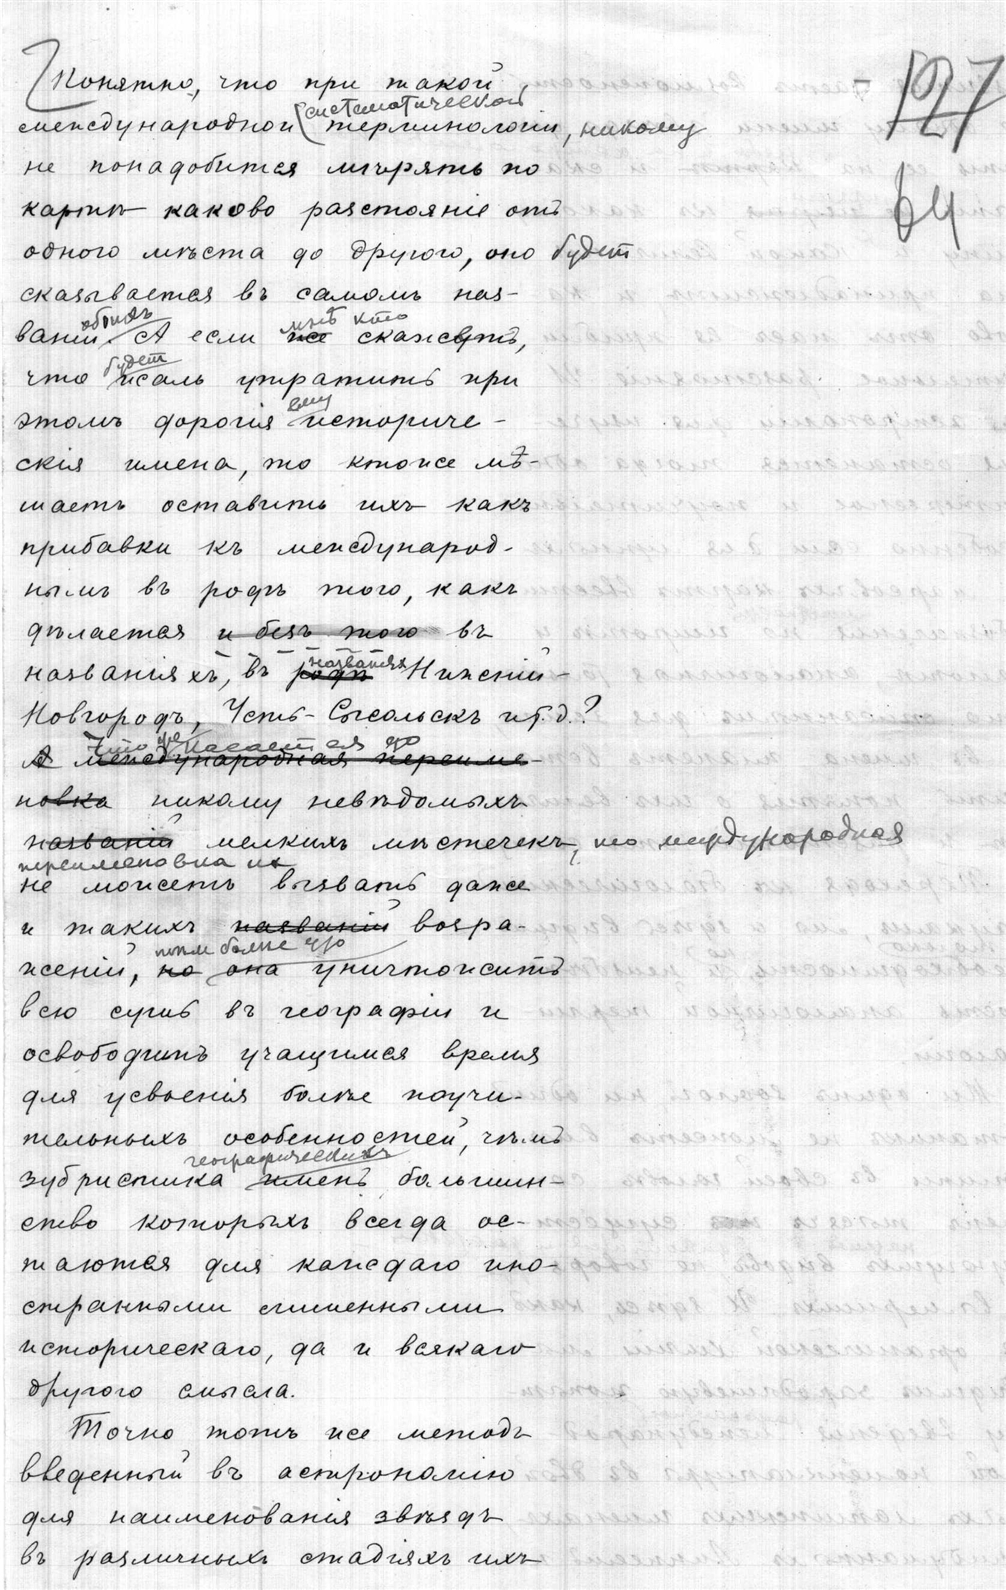 127
64
Понятно, что при такой
систематической
международной терминологіи, никому
не понадобится мѣрять по
картѣ каково разстояніе отъ
одного мѣста до другого, оно будет
сказывается въ самомъ наз-
ваніи. А если мнѣ кто же скажетъ,
что будет жаль утратить при
этомъ дорогія ему историче-
скія имена, то ктоже мѣ-
шаетъ оставить ихъ какъ
прибавки къ международ-
нымъ въ родѣ того, какъ
дѣлается и безъ того въ
названіяхъ, въ родѣ названія Нижній-
Новгородъ, Усть-Сысольскъ и т.д.?
Что же касается до
А международная переиме-
новка никому невѣдомыхъ
названій мелкихъ мѣстечекъ, то международная
переименовка их
не можетъ вызвать даже
и такихъ названій возра-
женій, тем более что но она уничтожитъ
всю сушь въ географіи и
освободитъ учащимся время
для усвоенія болѣе поучи-
тельныхъ особенностей, чѣмъ
географических
зубристика именъ большин-
ство которыхъ всегда ос-
таются для каждаго ино-
странными лишенными
историческаго, да и всякаго
другого смысла.
Точно тотъ же методъ
введенный въ астрономію
для наименованія звѣздъ
въ различныхъ стадіяхъ ихъ